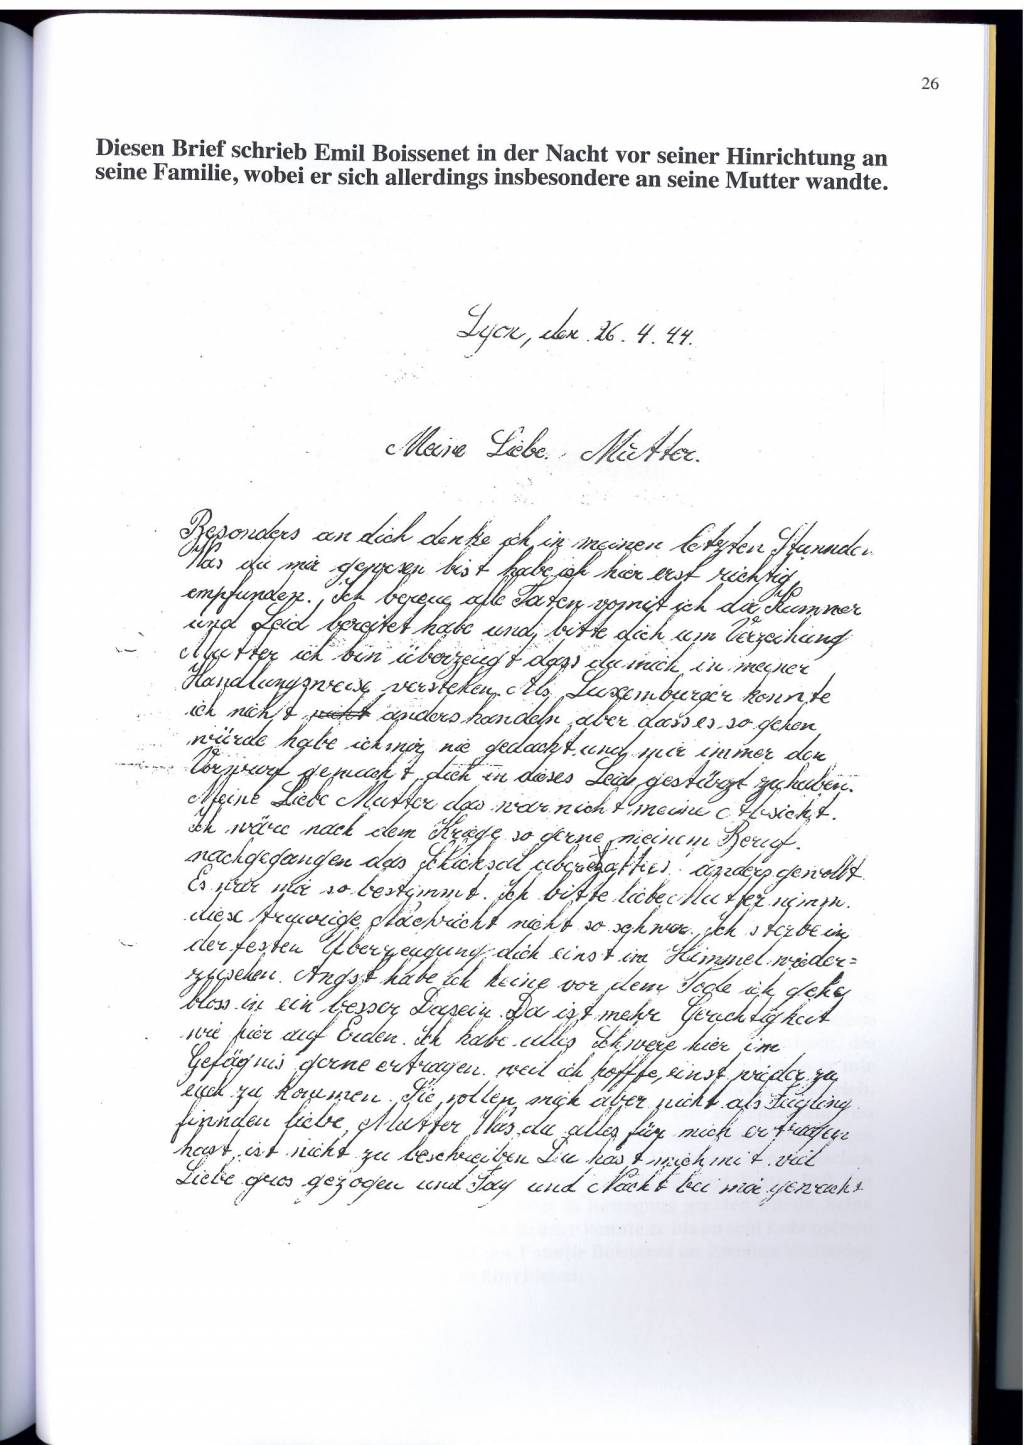 26
Diesen Brief schrieb Emil Boissenet in der Nacht vor seiner Hinrichtung an
seine Familie, wobei er sich allerdings insbesondere an seine Mutter wandte.
Lyon, den 26. 4. 44.
Meine Liebe Mutter.
Besonders an dich denke ich in meinen letzten Stunnden
Was du mir gewesen bist habe ich hier erst richtig
empfunden. Ich bereue alle Taten womit ich dir Kummer
und Leid bereitet habe und bitte dich um Verzeihung
Mutter ich bin überzeugt dass du mich in meiner
Handlungsweise verstehen. Als Luxemburger konnte
ich nicht nicht anders handeln, aber dass es so gehen
würde habe ich mir nie gedacht und mir immer den
Vorwurf gemacht, dich in dieses Leid gestürzt zu haben.
Meine Liebe Mutter das war nicht meine Absicht.
Ich wäre nach dem Kriege so gerne meinem Beruf
nachgegangen das Schicksal aber hat es anders gewollt
Es war mir so bestimmt. Ich bitte liebe Mutter nimm
diese traurige Nachricht nicht so schwer. Ich sterbe in
der festen Überzeugung dich einst im Himmel wieder=
zusehen. Angst habe ich keine vor dem Tode ich gehe
bloss in ein besser Dasein. Da ist mehr Gerechtigkeit
wie hier auf Erden. Ich habe alles Schwere hier im
Gefägnis gerne ertragen weil ich hoffte, einst wieder zu
euch zu kommen. Sie sollen mich aber nicht als Feigling
finnden liebe Mutter Was du alles für mich ertragen
hast, ist nicht zu beschreiben Du hast mich mit viel
Liebe gros gezogen und Tag und Nacht bei mir gewacht